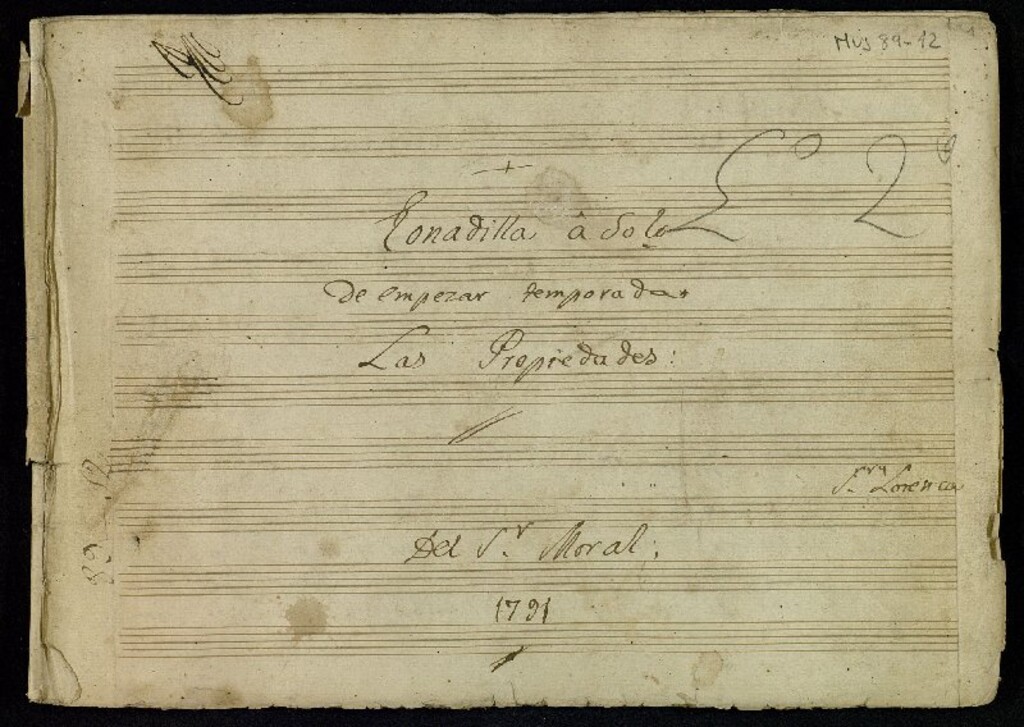 Mus 89-12
Lº 2
+
Tonadilla â Solo
de empezar temporada
Las Propiedades:
S.ra Lorenza
Del S.r Moral;
1791
89-12